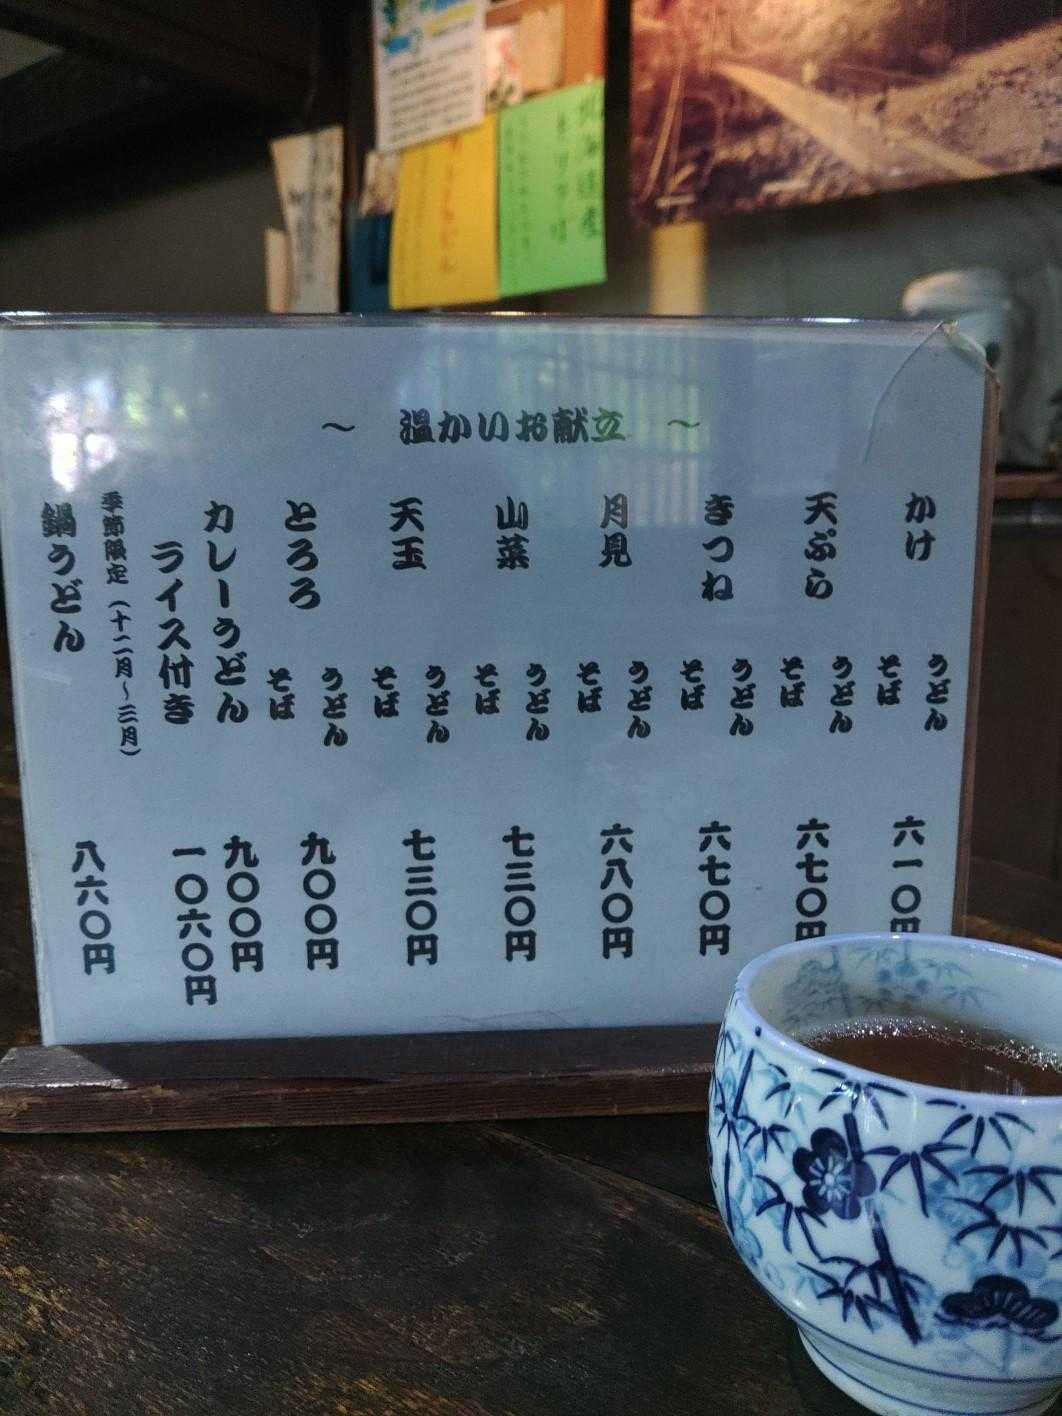 ～ 温かいお献立 ～
かけ うどん そば 六一〇円
天ぷら うどん そば 六七〇円
きつね うどん そば 六七〇円
月見 うどん そば 六八〇円
山菜 うどん そば 七三〇円
天玉 うどん そば 七三〇円
とろろ うどん そば 九〇〇円
カレーうどん 九〇〇円
ライス付き 一〇六〇円
季節限定（十二月～三月）
鍋うどん 八六〇円